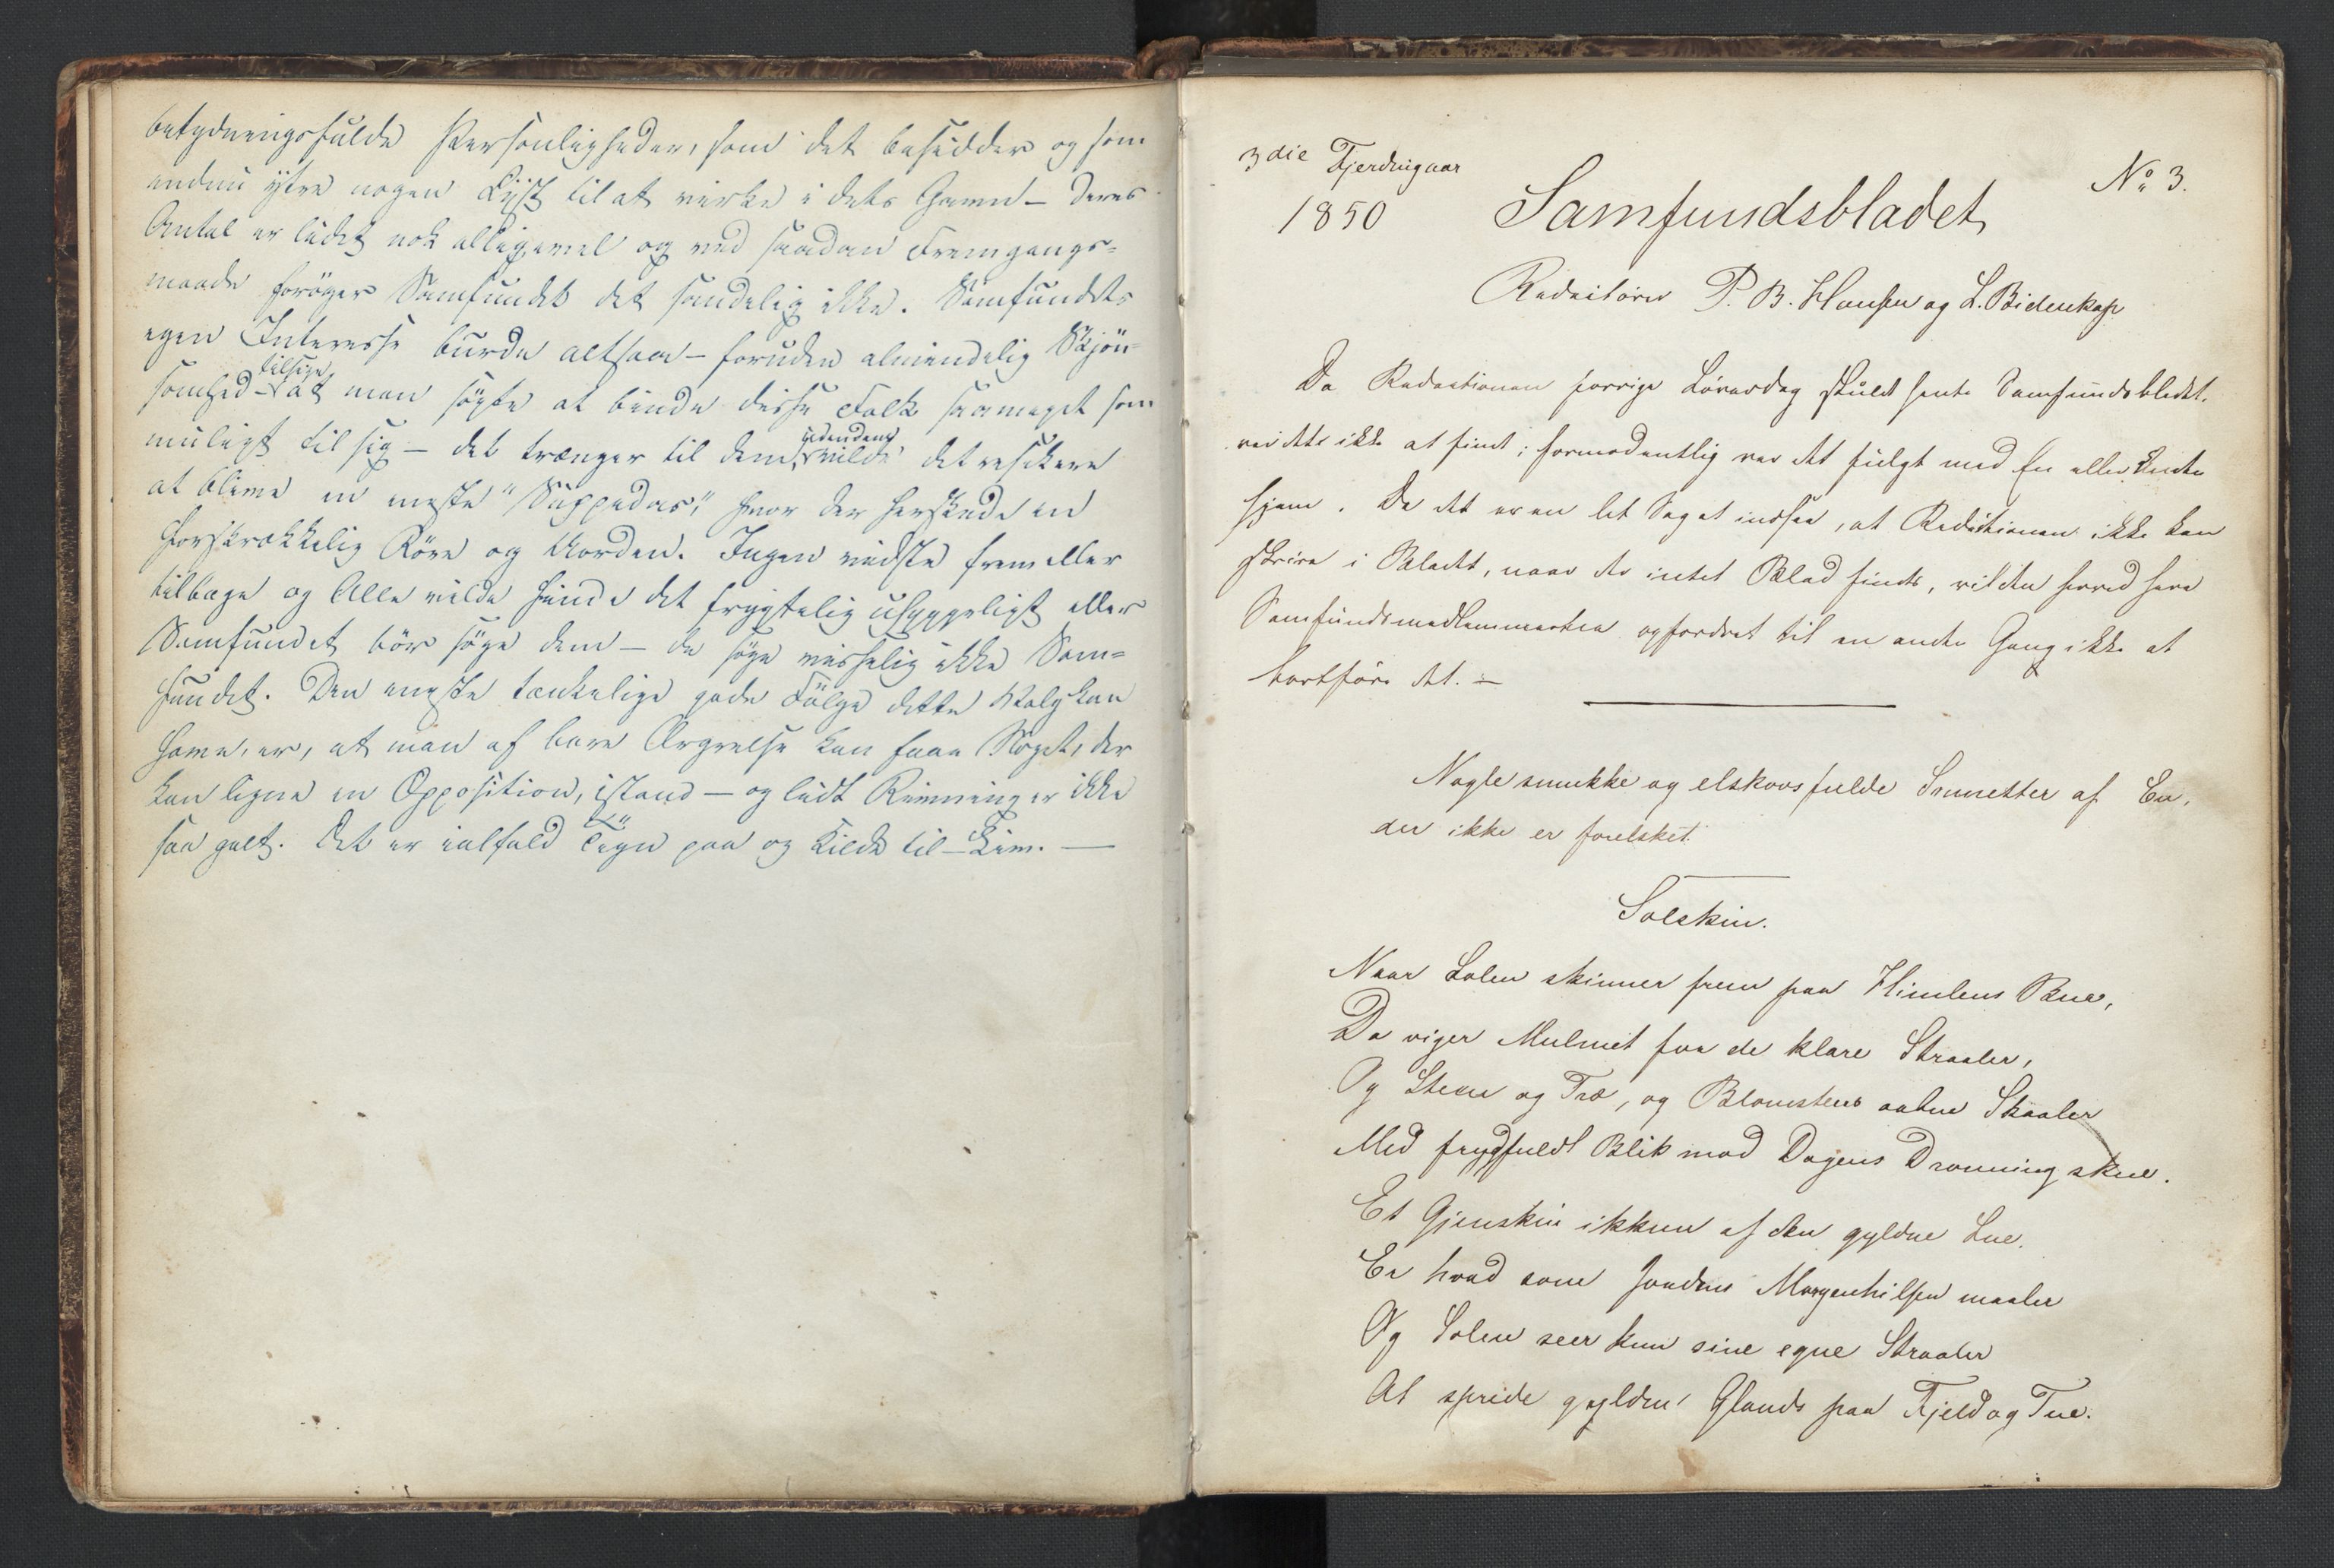 betydningsfulde Personligheder, som det besidder og som
endnu ytre nogen Lyst til at virke i dets Gavn – deres
Antal er lidet nok alligevel og ved saadan Fremgangs-
maade forøger Samfundet det sandelig ikke. Samfundets
egen Interesse burde altsaa – foruden almindelig Skjøn-
somhed – tilsige at man søgte at binde disse Folk saameget som
muligt til sig – det trænger til dem, vilde det resikere
at blive en "Suppedas," hvor der herskede en
forskrækkelig Røre og Uorden. Ingen vidste frem eller
tilbage og Alle vilde finde det frygtelig uhyggeligt eller
Samfundet bør søge dem – de søge visselig ikke Sam-
fundet. Den eneste tænkelige gode Følge dette Valg kan
have, er, at man af bare Ærgrelse kan faae Noget, der
kan ligne en Opposition, istand – og lidt Rivning er ikke
saa galt. Det er ialfald Tegn paa og Kilde til – Liv. —
3die Fjerdingaar
No 3.
1850 Samfundsbladet
Redaktører P. B. Hansen og L. Bidenkap
Da Redaktionen forrige Løverdag skulde hente Samfundsbladet,
var det ikke at finde; formodentlig var det fulgt med En eller Anden
hjem. Da det er en let Sag at indsee, at Redaktionen ikke kan
skrive i Bladet, naar der intet Blad findes, vil den herved have
Samfundsmedlemmerne opfordret til en anden Gang ikke at
bortføre det. –
Nogle smukke og elskovsfulde Sonnetter af En,
der ikke er forelsket.
Solskin.
Naar Solen skinner frem paa Himlens Bue,
Da viger Mulmet for de klare Straaler,
Og Steen og Træ, og Blomstens aabne Skaaler
Med frydfuldt Blik mod Dagens Dronning skue.
Et Gjenskin ikkun af den gyldne Lue,
Er hvad som Jordens Morgenhilsen maaler
Og Solen seer kun sine egne Straaler
At spride gylden Glands paa Fjeld og Tue.